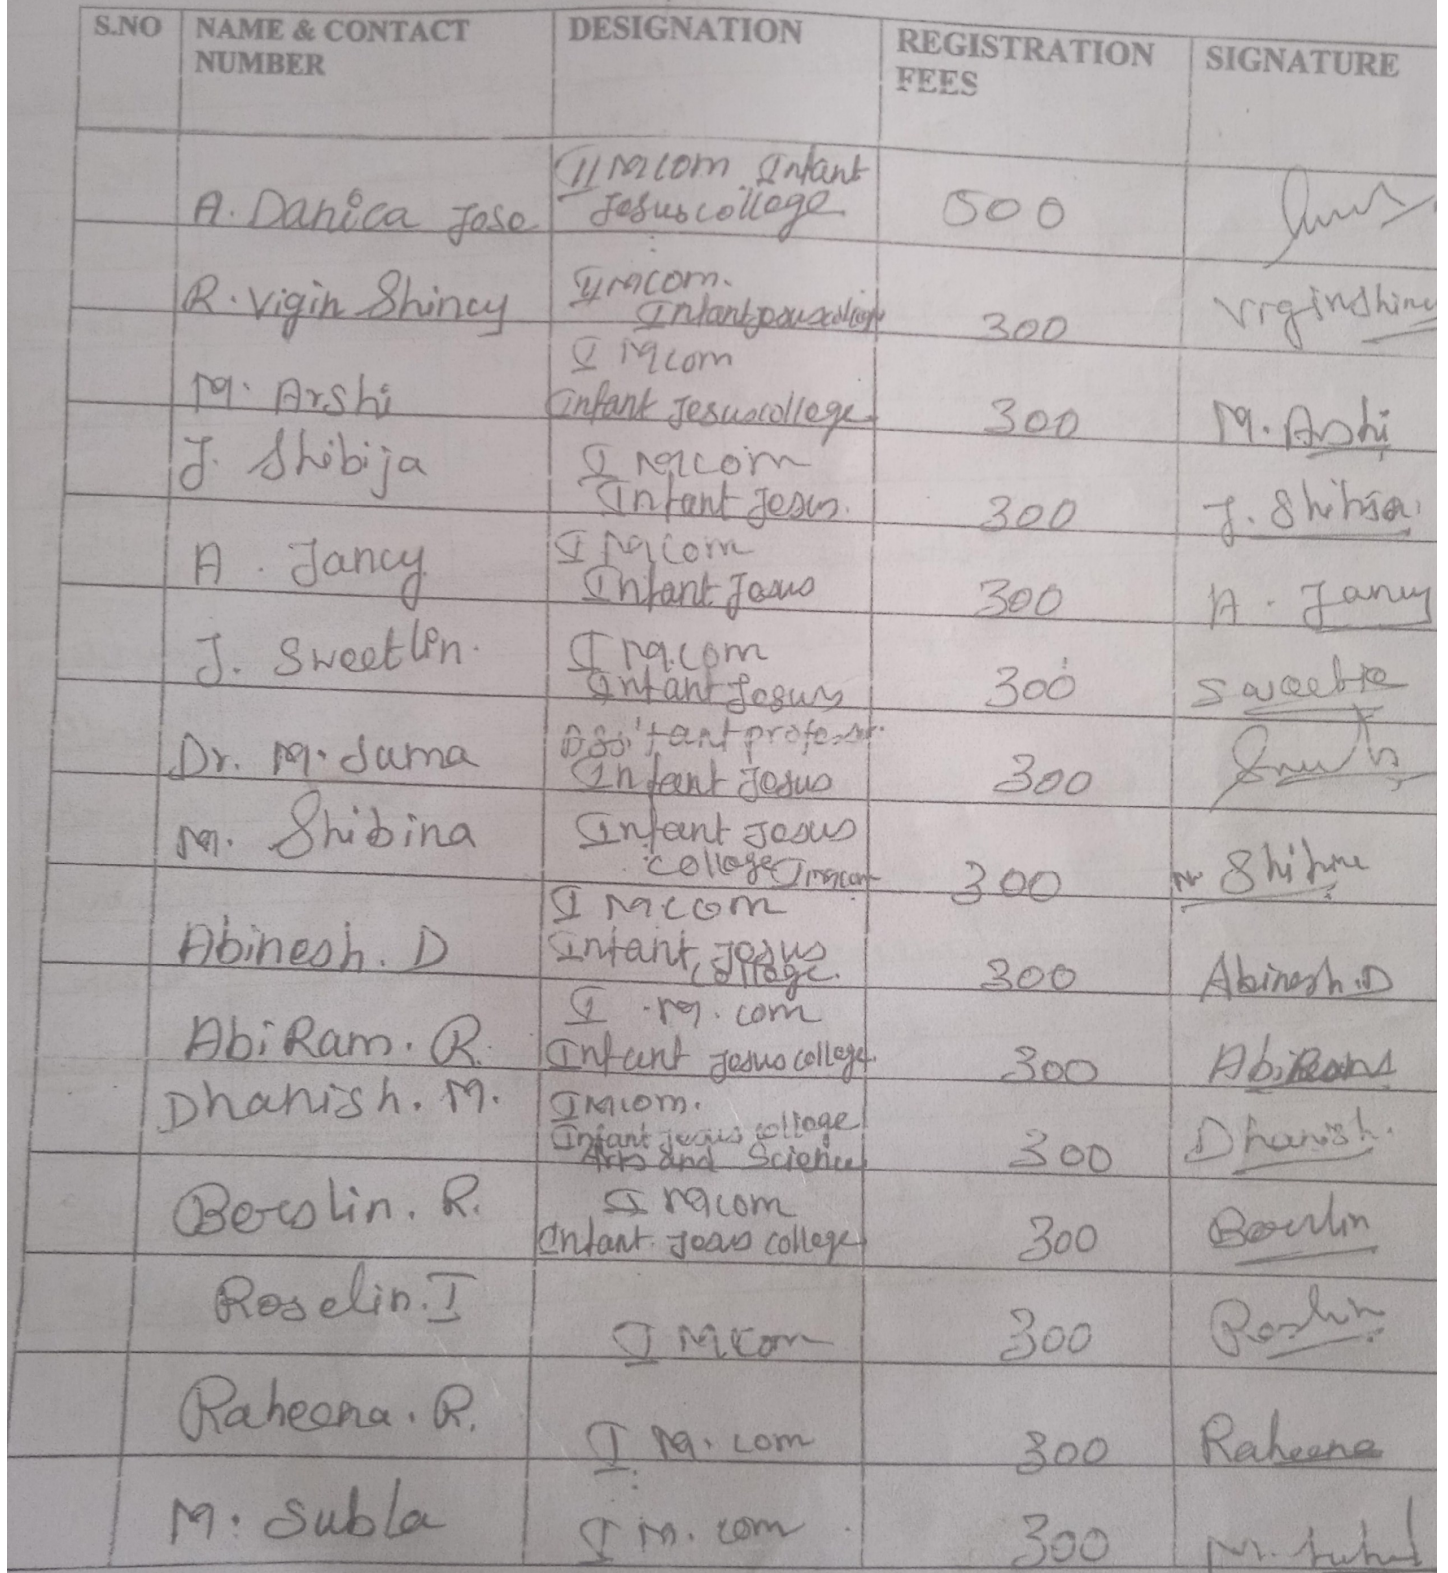 S.NO NAME & CONTACT NUMBER DESIGNATION REGISTRATION FEES SIGNATURE
II M com Infant
A. Danica Jose Jesus college 500
R. Vigin Shincy II M com. Virginshincy
Infant Jesus college 300
I M com
M. Arshi Infant Jesus college 300 M. Arshi
J. Shibija I M com
Infant Jesus. 300 J. Shibija
A. Jancy I M com
Infant Jesus 300 A. Jancy
J. Sweetlin. I M.com
Infant Jesus 300
Dr. M. Suma Assi'tant professor.
Infant Jesus 300
M. Shibina Infant Jesus
college I M com 300
I M com
Abinesh. D Infant Jesus 300 Abinesh.D
college.
I M. com
Abi Ram. R. Infant Jesus college. 300 Abiram
Dhanish. M. I M com.
Infant jesus college 300 Dhanish.
Arts and Science
Berslin. R. I M com
Infant Jesus college 300 Berslin
Roselin. I
I M com 300 Roslin
Raheena. R.
I M. com 300 Raheena
M. Subla I M. com 300